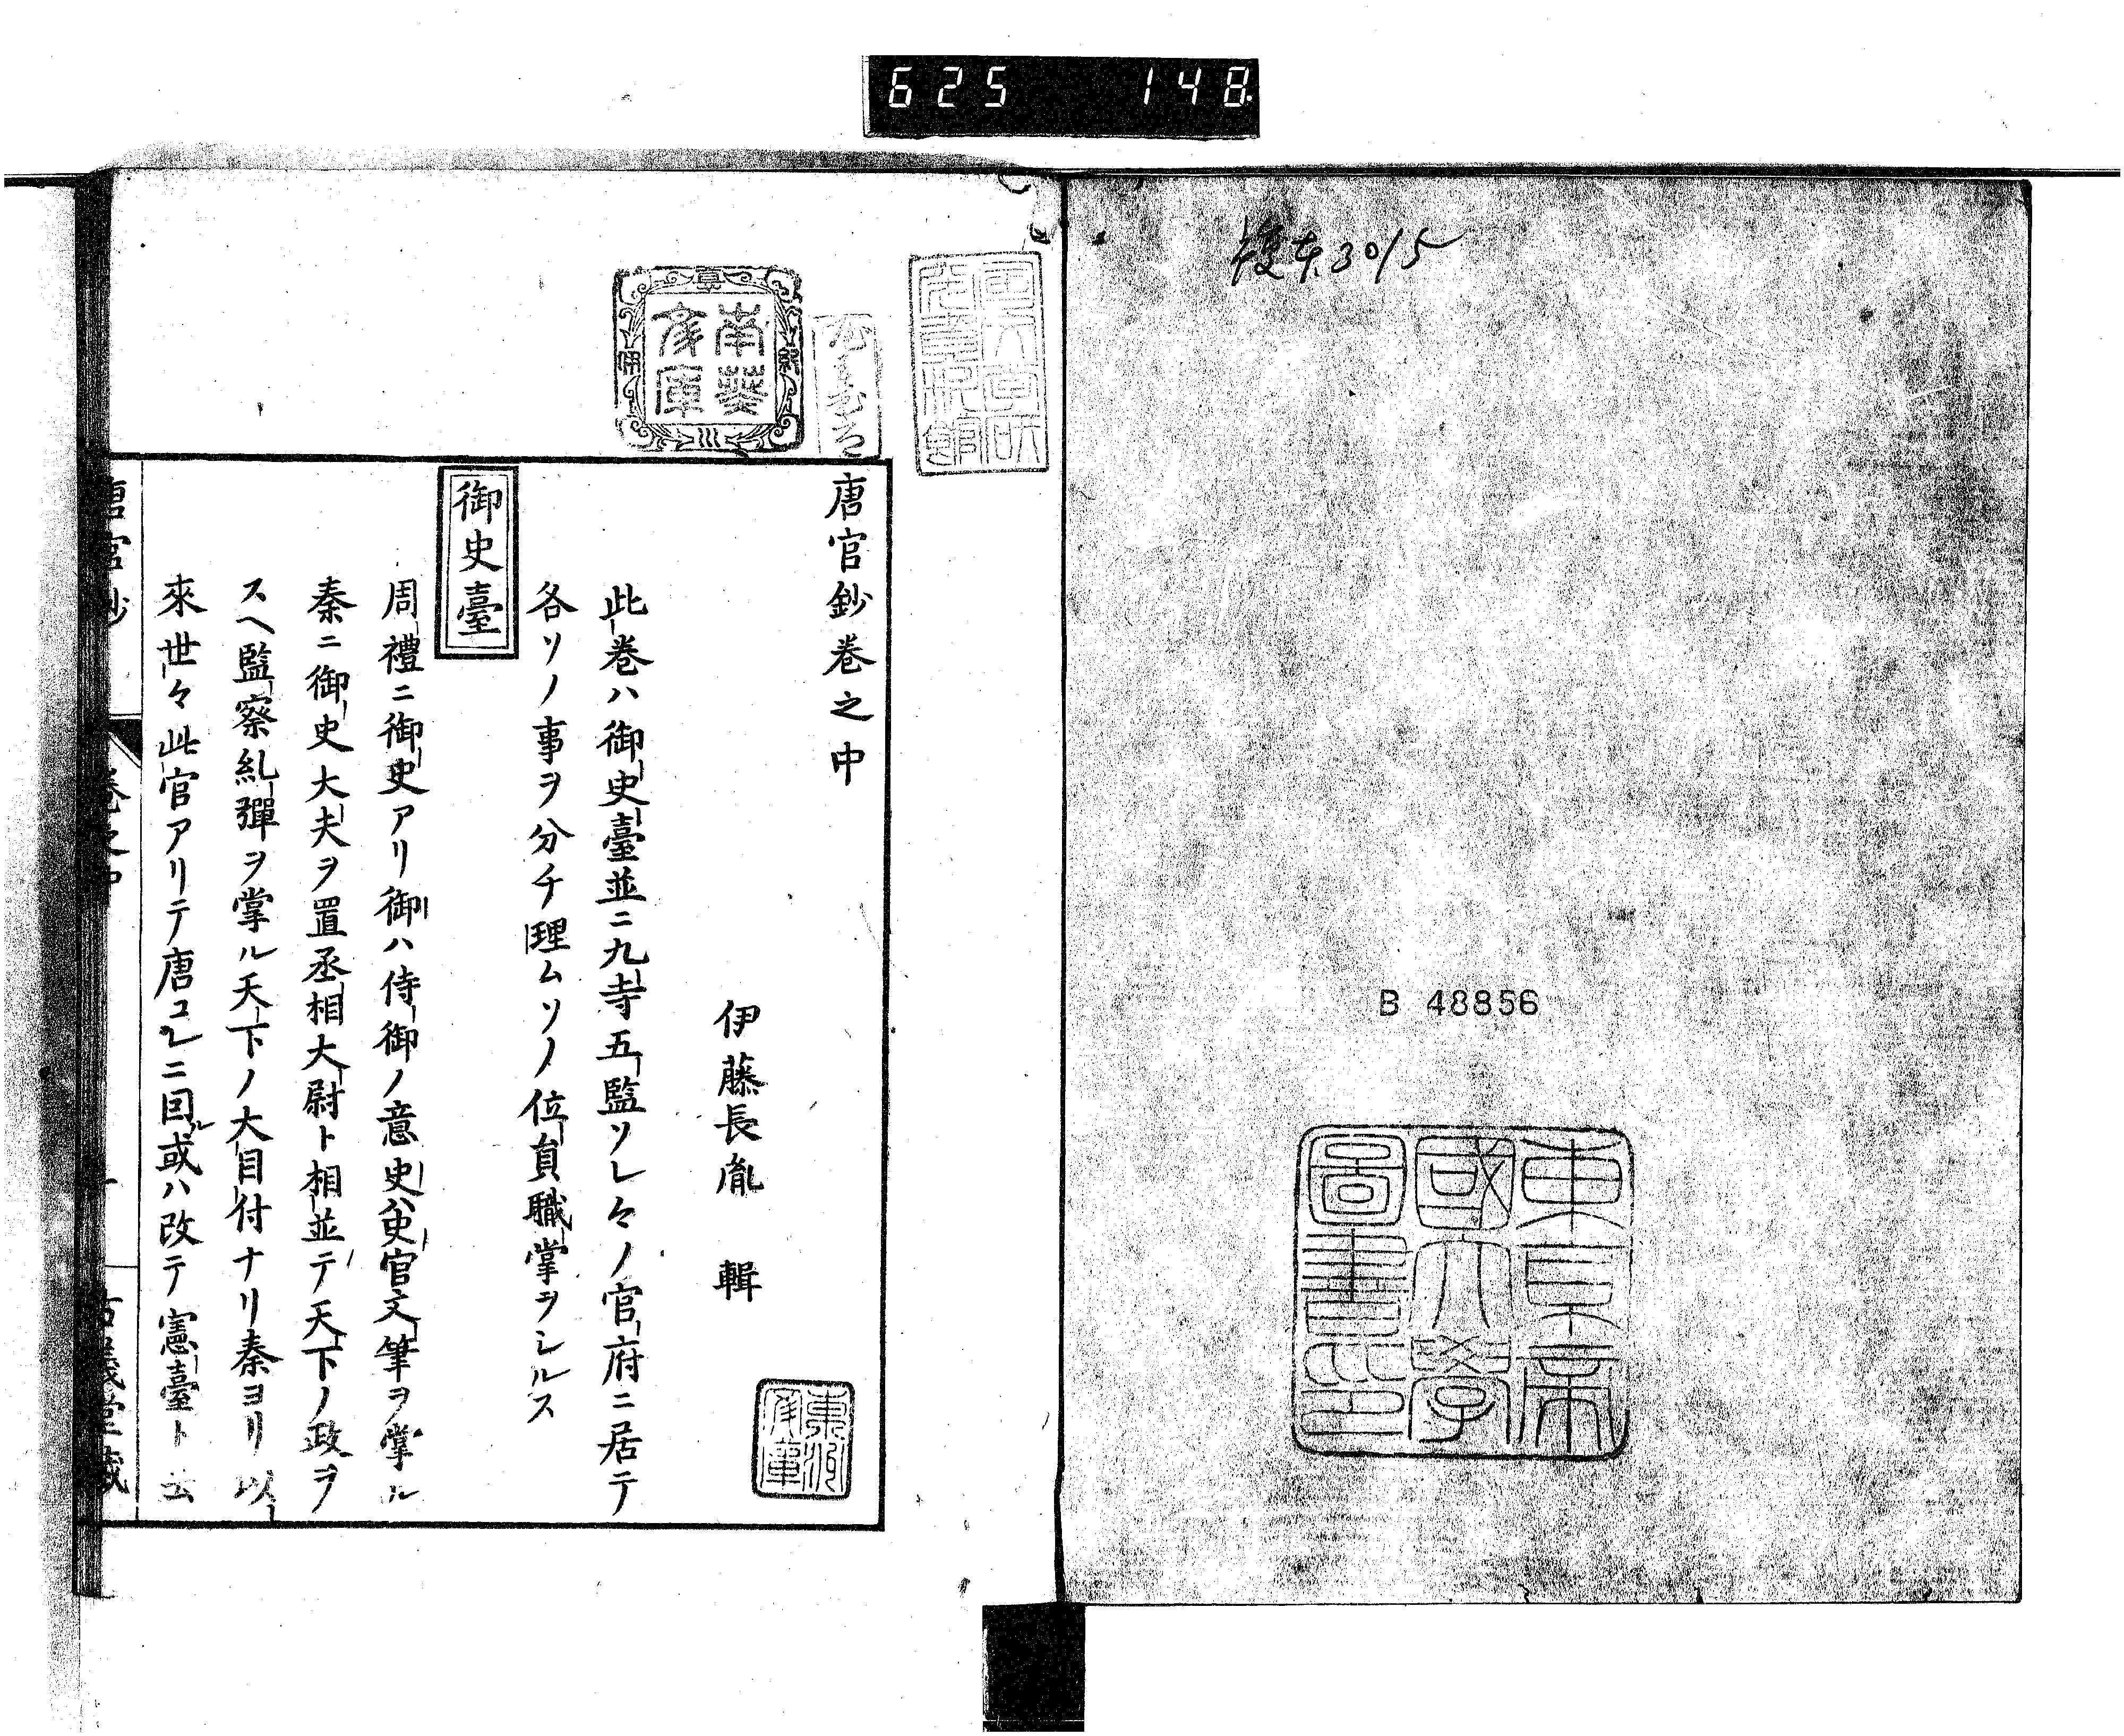 625 148
3015
B 48856
東京帝
國大學
圖書印
南葵
文庫
唐官鈔巻之中
伊藤長胤 輯
此巻ハ御史臺並ニ九寺五監ソレ々ノ官府ニ居テ
各ソノ事ヲ分チ理ムソノ位員職掌ヲシルス
御史臺
周禮ニ御史アリ御ハ侍御ノ意史ハ史官文筆ヲ掌ル
秦ニ御史大夫ヲ置丞相大尉ト相並テ天下ノ政ヲ
スヘ監察糺彈ヲ掌ル天下ノ大目付ナリ秦ヨリ以
來世々此官アリテ唐コレニ因ル或ハ改テ憲臺ト云
唐官鈔 巻之中 一 古義堂藏